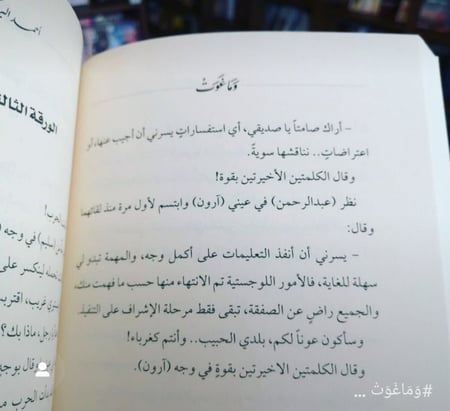 وَمَا غَوَتْ
- أراك صامتاً يا صديقي، أي استفساراتٍ يسرني أن أجيب عنها، أو
اعتراضاتٍ.. نناقشها سويةً.
وقال الكلمتين الأخيرتين بقوة!
نظر (عبدالرحمن) في عيني (آرون) وابتسم لأول مرة منذ لقائهما
وقال:
- يسرني أن أنفذ التعليمات على أكمل وجه، والمهمة تبدو لي
سهلة للغاية، فالأمور اللوجستية تم الانتهاء منها حسب ما فهمت منك،
والجميع راضٍ عن الصفقة، تبقى فقط مرحلة الإشراف على التنفيذ
وسأكون عوناً لكم، بلدي الحبيب.. وأنتم كغرباء!
وقال الكلمتين الاخيرتين بقوةٍ في وجه (آرون).
الورقة الثالثة
#وَمَاغَوَتْ ...